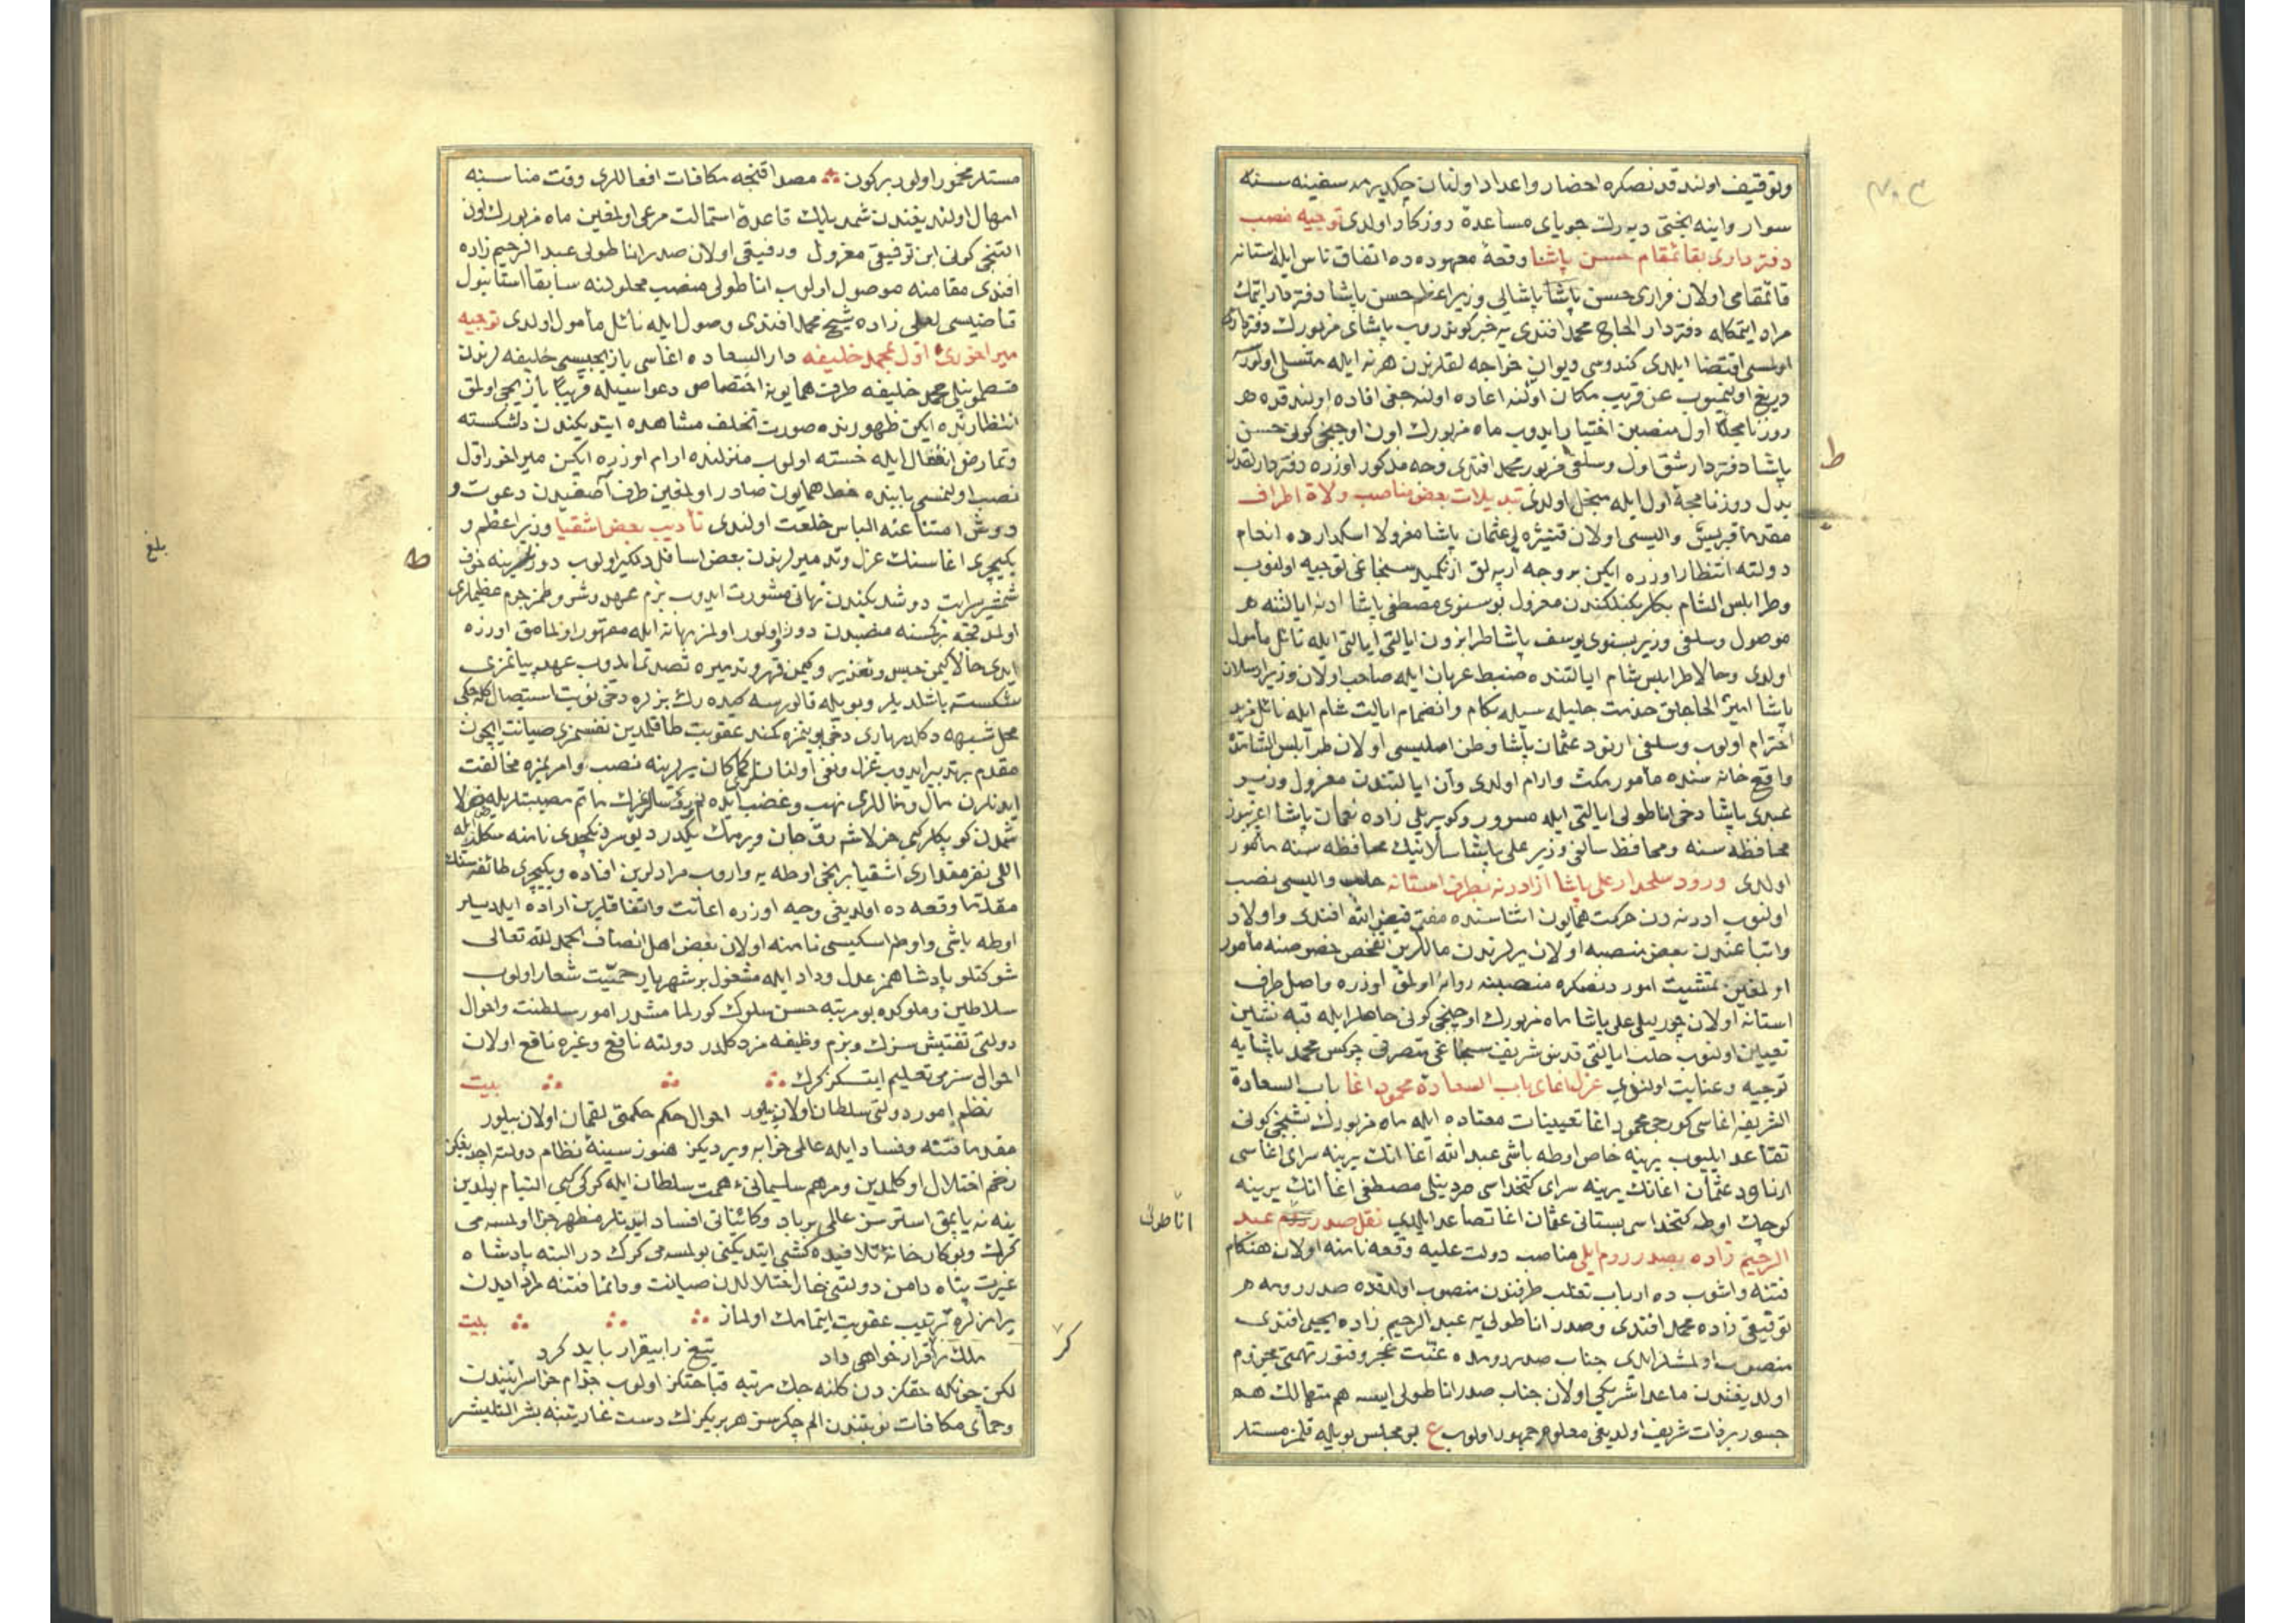 وتوقیف اولندقدنصکره احضار واعداد اولنان چکدیرمه سفینه سنه
سوار واینه بختی دیه رك جویای مساعدۀ روزکار اولدی توجیه نصب
دفترداری بقائمقام حسن پاشا وقعۀ معهوده ده اتفاق ناس ایله استانه
قائمقامی اولان فراری حسن پاشا پاشالی وزیراعظم حسن پاشا دفتردار ایتمك
مراد ایتمکله دفتردار الحاج محمد افندی یه خبر کوندروب پاشای مزبورك
اولمسی اقتضا ایلدی کندوسی دیوان خواجه لقلرندن هرنه ایله متسلی اولور
دریغ اولنمیوب عن قریب مکان اولنه اعاده اولنه جغی افاده اولندقده
روزنامجۀ اول منصبین اختیار ایدوب ماه مزبورك اون اوچنجی کونی حسن
پاشا دفتردار شق اول وسلفی مزبور محمد افندی وجه مذکور اوزره
بدل روزنامجۀ اول ایله مبجل اولدی تبدیلات بعض مناصب ولاة اطراف
مقدما قبریس والیسی اولان عثمان پاشا معزولا اسکدارده انعام
دولته انتظار اوزره ایکن بر وجه ارپه لق ازنکمید سنجاغی توجیه اولنوب
وطرابلس الشام بکلربکیلکندن معزول بوسنوی مصطفی پاشا ادنه ایالتنه
موصول وسلفی وزیر بسنوی یوسف پاشا طرابزون ایالتی ایله نائل مأمول
اولدی وحالا طرابلس شام ایالتنده ضبط عربان ایله صاحب اولان وزیر ارسلان
پاشا امیر الحاجلق خدمت جلیله سیله بکام وانضمام ایالت شام ایله نائل مزید
احترام اولوب وسلفی ارنود عثمان پاشا وطن اصلیسی اولان طرابلس الشامده
واقع خانه سنده مأمور مکث وارام اولدی وان ایالتندن معزول وزیر
عبدی پاشا دخی اناطولی ایالتی ایله مسرور وکوپریلی زاده نعمان پاشا اغریبوز
محافظه سنه ومحافظ سالفی وزیر علی پاشا سلانیك محافظه سنه مأمور
اولدی ورود سلحدار علی پاشا از ادرنه بطرف استانه حلب والیسی نصب
اولنوب ادرنه دن حرکت همایون اثناسنده مفتی فیض الله افندی واولاد
واتباعندن بعض منصبه اولان یرلرندن ماللرین تفحص خصوصنه مأمور
اولمغین تمشیت امور دنصکره منصبنه روانه اولمق اوزره واصل طرف
استانه اولان چورلیلی علی پاشا ماه مزبورك اوچنجی کونی خط ایله قبه نشین
تعیین اولنوب حلب ایالتی قدس شریف سنجاغی متصرفی چرکس محمد پاشایه
توجیه وعنایت اولندی عزل اغای باب السعادة محمود اغا باب السعادة
الشریفه اغاسی کورجی محمود اغا تعیینات معتاده ایله ماه مزبورك بشنجی کونی
تقاعد ایلیوب یرینه خاص اوطه باشی عبد الله اغا انك یرینه سرای اغاسی
ارناود عثمان اغا انك یرینه سرای کتخداسی مصطفی اغا انك یرینه
کوچك اوطه کتخداسی بستانی عثمان اغا تصاعد ایلدی نقل صدر عبد
الرحیم زاده بصدر روم ایلی مناصب دولت علیه وقعه نامنه اولان هنکام
فتنه واشوب ده ارباب تغلب طرفندن منصوب اولدقده صدر رومه
توقیعی زاده محمد افندی وصدر اناطولی یه عبد الرحیم زاده یحیی افندی
منصوب اولمشلر ایدی جناب صدر رومده عنت عجز وفتور تهمتی
اولدیغندن ماعدا شریکی اولان جناب صدر اناطولی ایسه هم متهالك هم
جسور بر ذات شریف اولدیغی معلوم جمهور اولوب ع بو مجلس بویله قلمز مستلر
اناطولی
مستلر مخمور اولور بر کون مصداقنجه مکافات افعاللری وقت مناسبه
امهال اولندیغندن شمدیلك قاعدۀ استمالت مرعی اولمغین ماه مزبورك اون
التنجی کونی ابن توقیعی معزول ورفیقی اولان صدر اناطولی عبد الرحیم زاده
افندی مقامنه موصول اولوب اناطولی منصب محلولنه سابقا استانبول
قاضیسی زاده شیخ محمد افندی وصول ایله نائل مأمول اولدی توجیه
میراخوری اول بمحمد خلیفه دار السعاده اغاسی یازیجیسی خلیفه لرندن
قسطمونیلی محمد خلیفه طرف همایونه اختصاص دعواسیله قریبا یازیجی اولمق
انتظارنده ایکن ظهورنده صورت تخلف مشاهده ایتدیکندن دلشکسته
وتمارض انفعال ایله خسته اولوب منزلنده ارام اوزره ایکن میراخور اول
نصب اولنمسی بابنده خط همایون صادر اولمغین طرف آصفیدن دعوت و
دوش امتناعنه الباس خلعت اولندی تأدیب بعض اشقیا وزیراعظم و
یکیچری اغاسنك عزل وتدمیرلرندن بعض اسافل دلکیر اولوب
شمشیر سرایت دوشدیکندن نهانی مشورت ایدوب بزم عهد وشرطمز جرم عظیملری
اولمدقجه برکسنه منصبدن دور اولور اولمز بهانه ایله معهور اولمامق اوزره
ایدی حالا کیمن حبس وتعذیر وکیمن قهر وتدمیره تصدی ایدوب عهد وپیاتمزی
شکست باشلدیلر وبویله قالورسه کیده رك بزلره دخی نوبت استیصال کله جکی
محل شبهه دکلدر باری دخی بوینمزه کمند عقوبت طاقلمدین نفسمزی صیانت ایچون
مقدم بر تدبیر ایدوب عزل ونفی اولنانلری کماکان یرلرینه نصب وامریمزه مخالفت
ایدنلرن مال ومناللری نهب وغضب
شمدن کرو
اللی نفر مقداری اشقیا برنجی اوطه یه واروب مرادلرین افاده ویکیچری طائفه سنك
مقدما وقعه ده اولدیغی وجه اوزره اعانت واتفاقلرین اراده ایلدیلر
اوطه باشی واوطه اسکیسی نامنه اولان بعض اهل انصاف الحمد لله تعالی
شوکتلو پادشاهمز عدل وداد ایله مشغول بر شهریار حمیت شعار اولوب
سلاطین وملوکده بو مرتبه حسن سلوك کورلمامشدر امور سلطنت واحوال
دولتی تفتیش سزك وبزم وظیفه مز دکلدر دولته نافع وغیر نافع اولان
احوالی سزمی تعلیم ایتسکز کرك بیت
نظلم امور دولتی سلطان اولان بیلور احوال حکم حکمتی لقمان اولان بیلور
مقدما فتنه وفساد ایله عالمی خرابه ویردیکز هنوز سینۀ نظام دولته اچدیغکز
زخم اختلال اوکلمدین ومرهم سلیمانئ همت سلطان ایله کرکی کبی التیام بولمدین
ینه نه یاپمق استرسز عالمی برباد وکائناتی افساد ایدنلر مظهر جزا اولمسه می
کرك وبو کارخانه تلافیده کشی ایتدیکنی بولمسه می کرك در البته پادشاه
غیرت پناه دامن دولتنی خار اختلالدن صیانت ودائما فتنه ایدن
یرامزلره ترتیب عقوبت ایتمامك اولماز بیت
ملك را قرار خواهی داد تیغ را بیقرار باید کرد
لکن چونکه حقکزدن کلنه جك مرتبه قباحتکز اولوب
وحمای مکافات نوبتندن الم چکرسز هر بریکزك دست غارتنه بشر التلیشر
بلغ